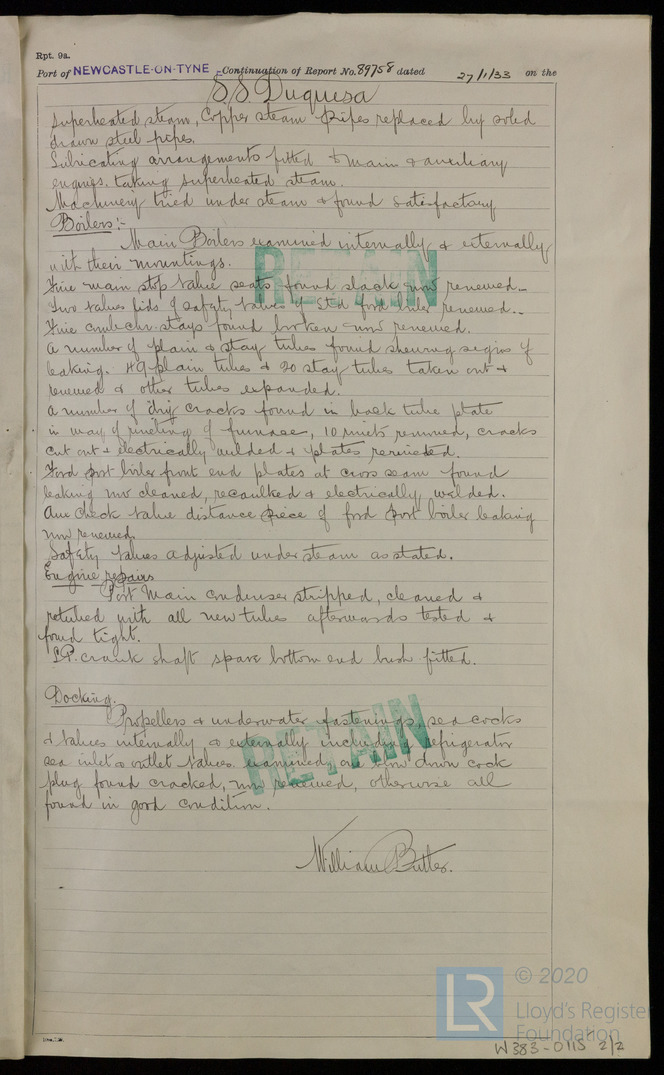 Rpt. 9a.
Port of NEWCASTLE-ON-TYNE Continuation of Report No. 89758 dated 27/1/33 on the
SS Duquesa
Superheated steam, Copper steam pipes replaced by solid
drawn steel pipes.
Lubricating arrangements fitted to main & auxiliary
engines taking superheated steam.
Machinery tried under steam & found satisfactory
Boilers:-
Main Boilers examined internally & externally
with their mountings.
Five main stop valve seats found slack now renewed.
Two valve lids of safety valve of Std ford boiler renewed.
Five comb. chr. stays found broken now renewed.
A number of plain & stay tubes found shewing signs of
leaking. 49 plain tubes & 20 stay tubes taken out &
renewed & other tubes expanded.
A number of cracks found in back tube plate
in way of riveting of furnace, 10 rivets removed, cracks
cut out & electrically welded & plates reriveted.
Ford port boiler front end plates at cross seam found
leaking now cleaned, recaulked & electrically welded.
Aux Check valve distance piece of ford port boiler leaking
now renewed.
Safety valves adjusted under steam as stated.
Engine repairs
Port Main Condenser stripped, cleaned &
retubed with all new tubes afterwards tested &
found tight.
crank shaft spare bottom end bush fitted.
Docking.
Propellers & underwater fastenings, sea cocks
& valves internally & externally including refrigerator
sea inlet & outlet valves examined, one blow down cock
plug found cracked, now renewed, otherwise all
found in good condition.
William Butler.
RETAIN
RETAIN
LR © 2020
Lloyd's Register
Foundation
W383-0115 2/2